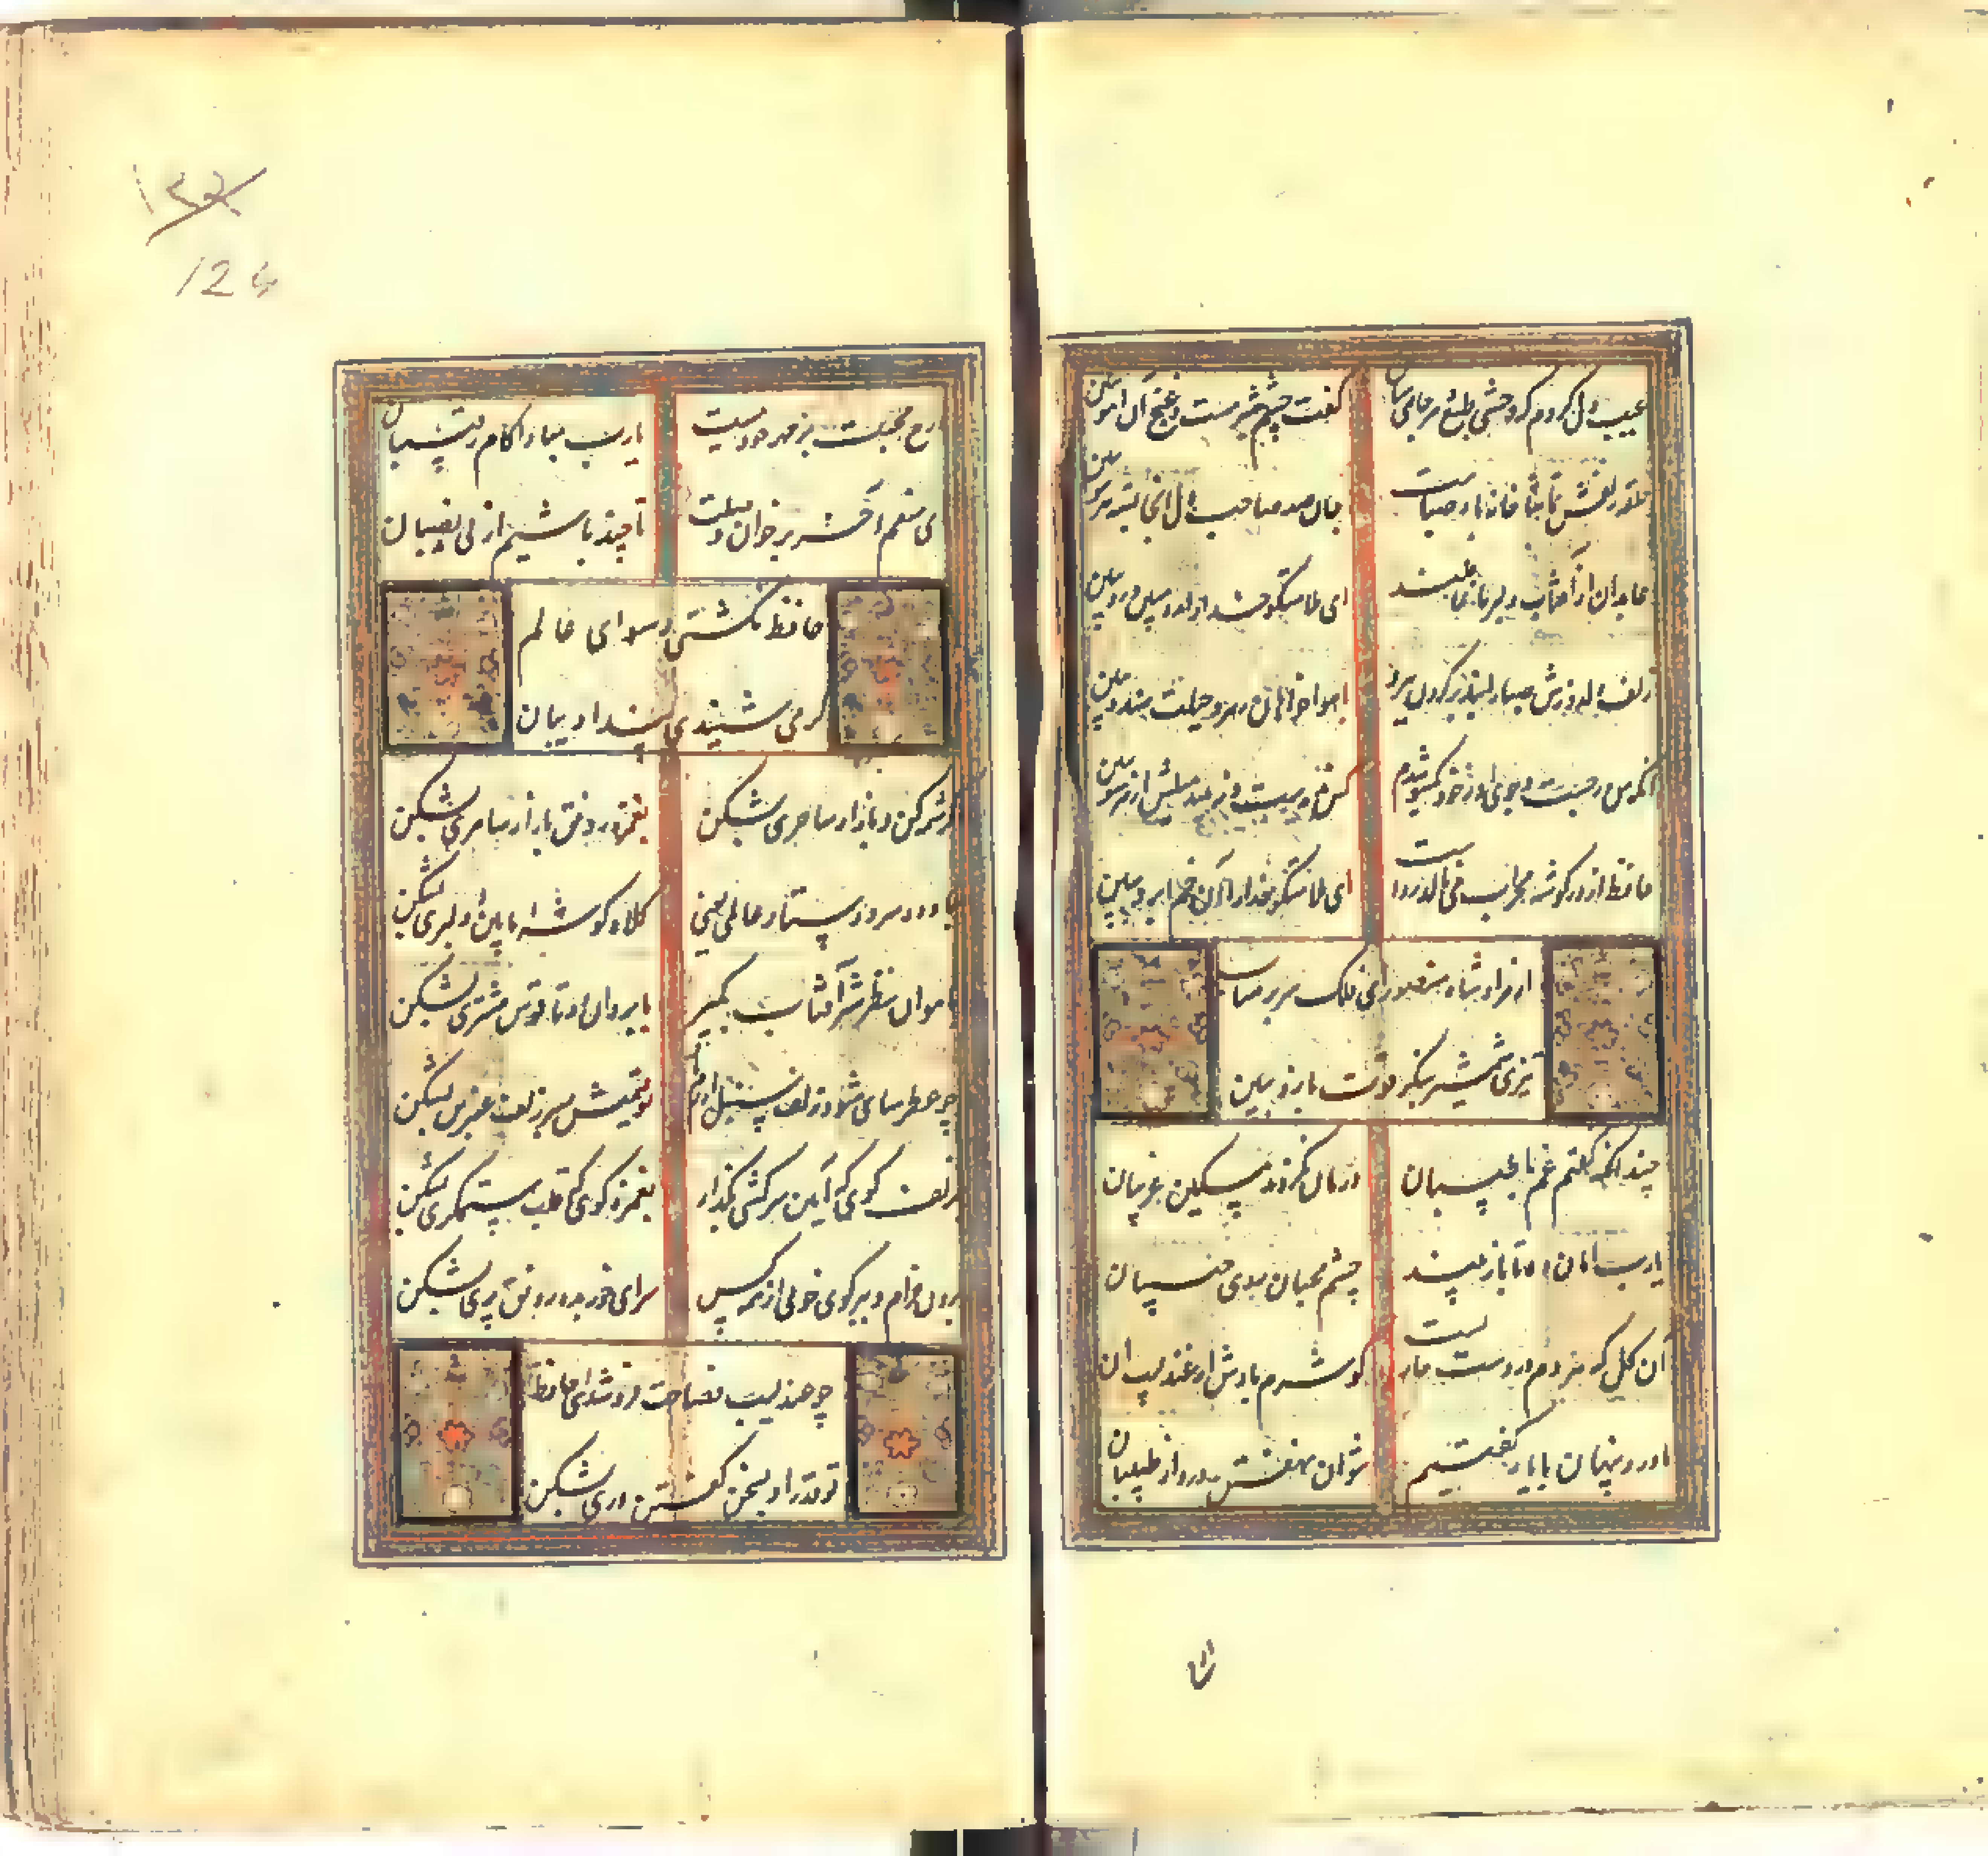 عیب دل کردم که وحشی طبع و هرجایی مباش گفت چشم شیر مست و غنج آن آهو ببین
حلقه زلفش تماشاخانه باد صباست جان صد صاحب دل آنجا بسته هر مو ببین
عابدان از آفتاب دلبر ما غافلند ای ملامتگو خدا را رو مبین و رو ببین
زلف دل دزدش صبا را بند بر گردن نهاد با هواخواهان رهرو حیلت هندو ببین
آنکه من در جست و جوی او ز خود یکسو شدم کس ندیدست و نبیند مثلش از هر سو ببین
حافظ ار در گوشه محراب می نالد رواست ای ملامتگو خدا را آن خم ابرو ببین
از مراد شاه منصور ای فلک سر برمتاب
تیزی شمشیر بنگر قوت بازو ببین
چندانکه گفتم غم با طبیبان درمان نکردند مسکین غریبان
یا رب امان ده تا باز بیند چشم محبان روی حبیبان
آن گل که هر دم در دست خاریست گو شرم بادش از عندلیبان
ما درد پنهان با یار گفتیم نتوان نهفتن درد از طبیبان
درج محبت بر مهر خود نیست یارب مباد کام رقیبان
ای منعم آخر بر خوان وصلت تا چند باشیم از بی نصیبان
حافظ نگشتی رسوای عالم
گر می شنیدی پند ادیبان
کرشمه کن و بازار ساحری بشکن بغمزه رونق بازار سامری بشکن
بباد ده سر و دستار عالمی یعنی کلاه گوشه بآیین دلبری بشکن
بآهوان نظر شیر آفتاب بگیر بابروان دوتا قوس مشتری بشکن
چو عطرسای شود زلف سنبل از دم باد تو قیمتش بسر زلف عنبری بشکن
بزلف گوی که آیین سرکشی بگذار بغمزه گوی که قلب ستمگری بشکن
برون خرام و ببر گوی خوبی از همه کس سزای حور بده رونق پری بشکن
چو عندلیب فصاحت فروشد ای حافظ
تو قدر او بسخن گفتن دری بشکن
124